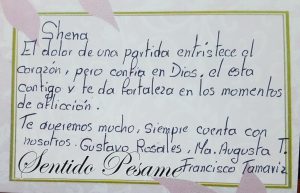 Shena
El dolor de una partida entristece el
corazón, pero confia en Dios, el esta
contigo y te da fortaleza en los momentos
de aflicción.
Te queremos mucho, siempre cuenta con
nosotros. Gustavo Rosales, Ma. Augusta T.
Sentido Pesame Francisco Tamariz